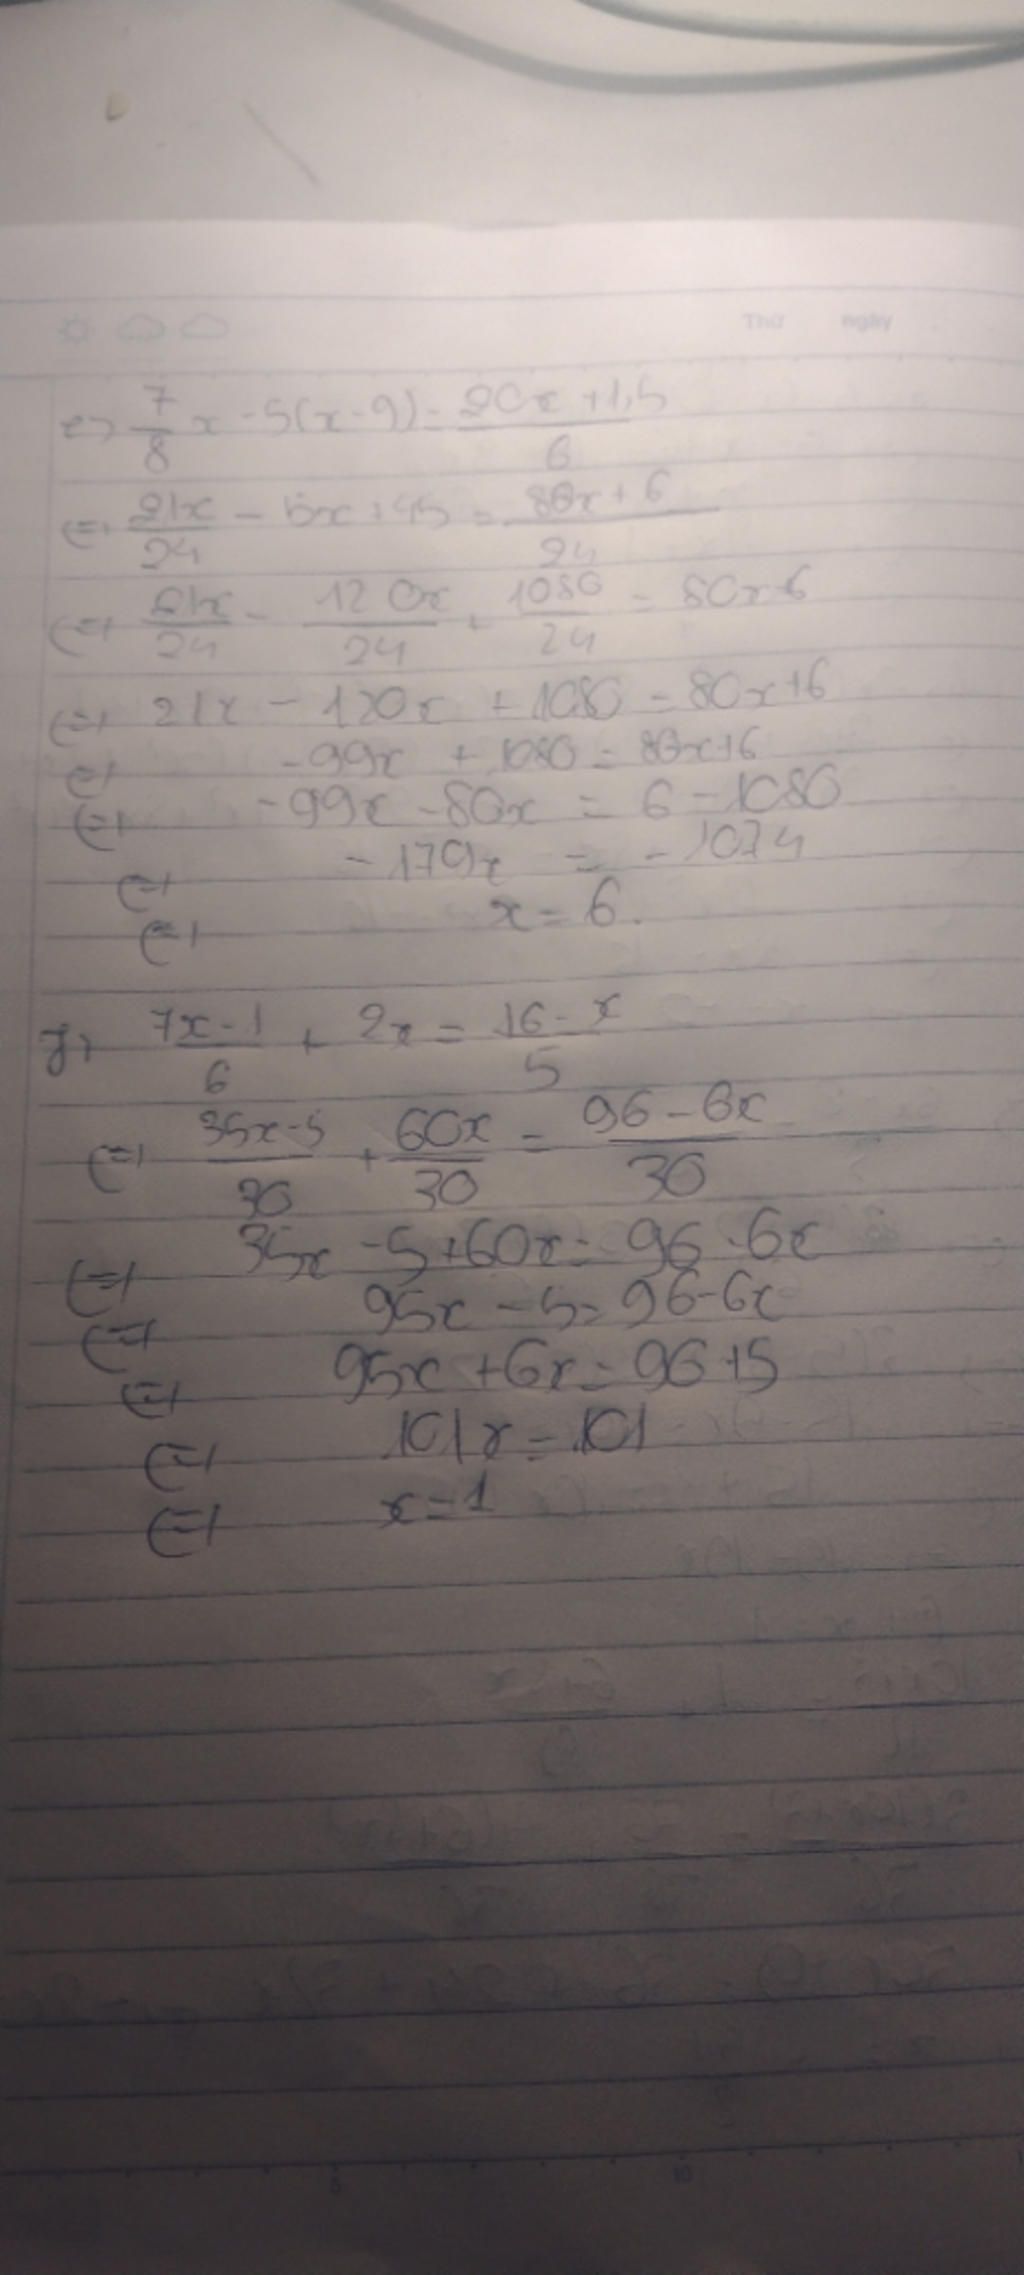 Thứ ngày
e) 7/8 x - 5(x - 9) = 20x + 1,5 / 6
(=) 21x/24 - 5x + 45 = 80x + 6 / 24
(=) 21x/24 - 120x/24 + 1080/24 = 80x+6
(=) 21x - 120x + 1080 = 80x + 6
(=) -99x + 1080 = 80x + 6
(=) -99x - 80x = 6 - 1080
(=) -179x = -1074
(=) x = 6.
7x - 1 / 6 + 2x = 16 - x / 5
(=) 35x - 5 / 30 + 60x/30 = 96 - 6x / 30
(=) 35x - 5 + 60x = 96 - 6x
(=) 95x - 5 = 96 - 6x
(=) 95x + 6x = 96 + 5
(=) 101x = 101
(=) x = 1
5 10